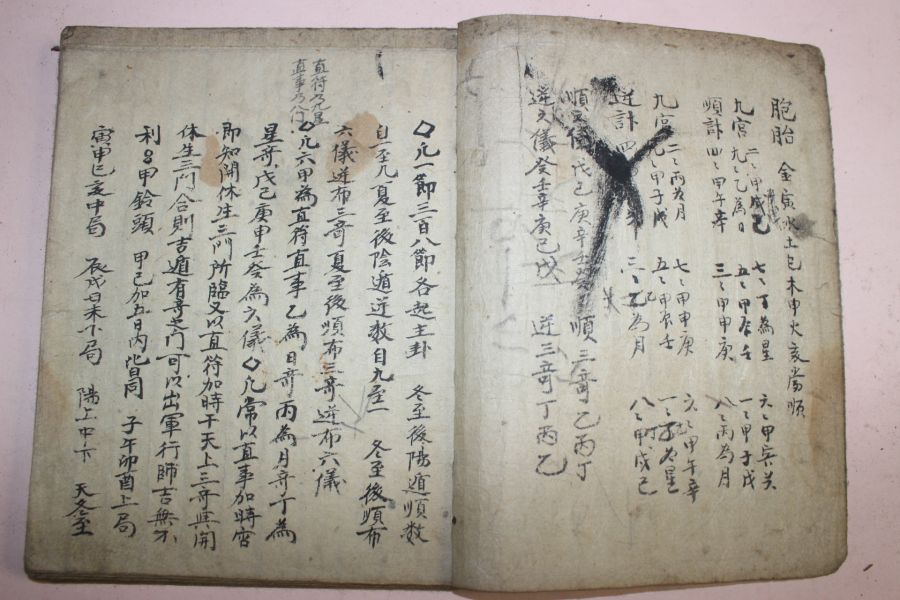 胞胎 金寅水土巳木申火亥常順
九宮 二ミ甲戌己 七ミ丁為星 六ミ甲寅癸
九ミ乙為日 五ミ甲辰壬 一ミ甲子戊
順計 四ミ甲午辛 三ミ甲申庚 八ミ丙為月
九宮 二ミ丙為月 七ミ甲申庚 六ミ甲午辛
九ミ甲子戊 五ミ甲辰壬 一ミ丁為星
逆計 四 三ミ乙為月 八ミ甲戌己
順六儀戊己庚辛壬癸 順三奇乙丙丁
逆六儀癸壬辛庚己戊 逆三奇丁丙乙
直符乃九星
直事乃八门
◇凡一節三百八節各起主卦 冬至後陽遁順数
自一至九夏至後陰遁逆数自九至一 冬至後順布
六儀逆布三奇夏至後順布三奇逆布六儀
◇凡六甲為直符直事乙為日奇丙為月奇丁為
星奇戊己庚辛壬癸為六儀◇凡常以直事加時宮
即知開休生三門所臨又以直符加時干天上三奇與開
休生三门合則吉遁有奇之门可以出軍行師吉無不
利 甲鈴頭 甲己加五日内皆同 子午卯酉上局
寅申巳亥中局 辰戌丑未下局 陽上中下 天冬至